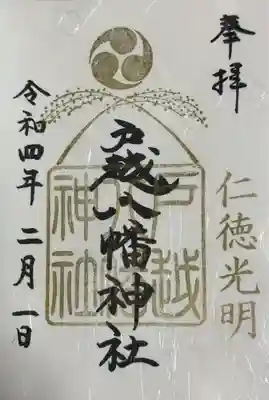 奉拝
仁徳光明
戸越八幡神社
戸越八幡神社
令和四年 二月一日